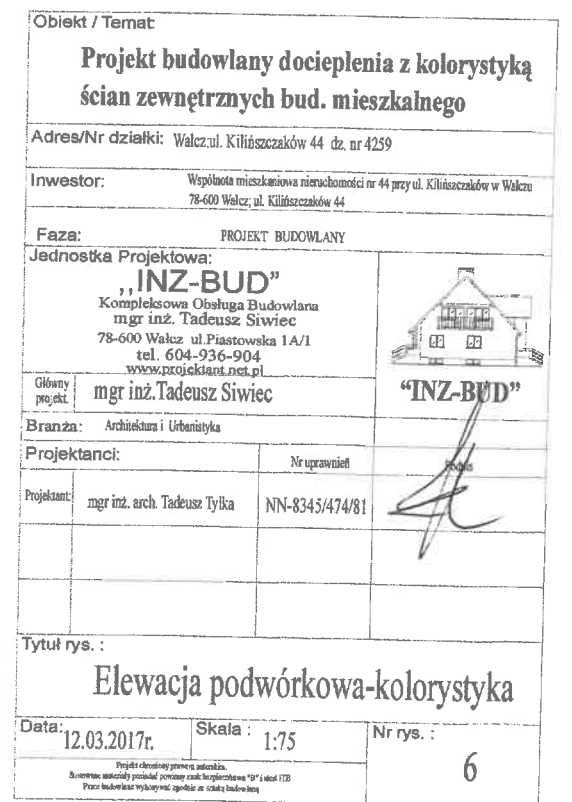 Obiekt / Temat:
Projekt budowlany docieplenia z kolorystyką
ścian zewnętrznych bud. mieszkalnego
Adres/Nr działki: Wałcz;ul. Kilińszczaków 44 dz. nr 4259
Inwestor: Wspólnota mieszkaniowa nieruchomości nr 44 przy ul. Kilińszczaków w Wałczu
78-600 Wałcz; ul. Kilińszczaków 44
Faza: PROJEKT BUDOWLANY
Jednostka Projektowa:
,,INZ-BUD"
Kompleksowa Obsługa Budowlana
mgr inż. Tadeusz Siwiec
78-600 Wałcz ul.Piastowska 1A/1
tel. 604-936-904
www.projektant.net.pl
"INZ-BUD"
Główny
projekt.
mgr inż.Tadeusz Siwiec
Branża: Architektura i Urbanistyka
Projektanci: Nr uprawnień Podpis
Projektant: mgr inż. arch. Tadeusz Tylka NN-8345/474/81
Tytuł rys. :
Elewacja podwórkowa-kolorystyka
Data: 12.03.2017r. Skala : 1:75 Nr rys. : 6
Projekt chroniony prawem autorskim.
Stosowane materiały posiadać powinny znak bezpieczeństwa "B" i atest ITB
Prace budowlane wykonywać zgodnie ze sztuką budowlaną